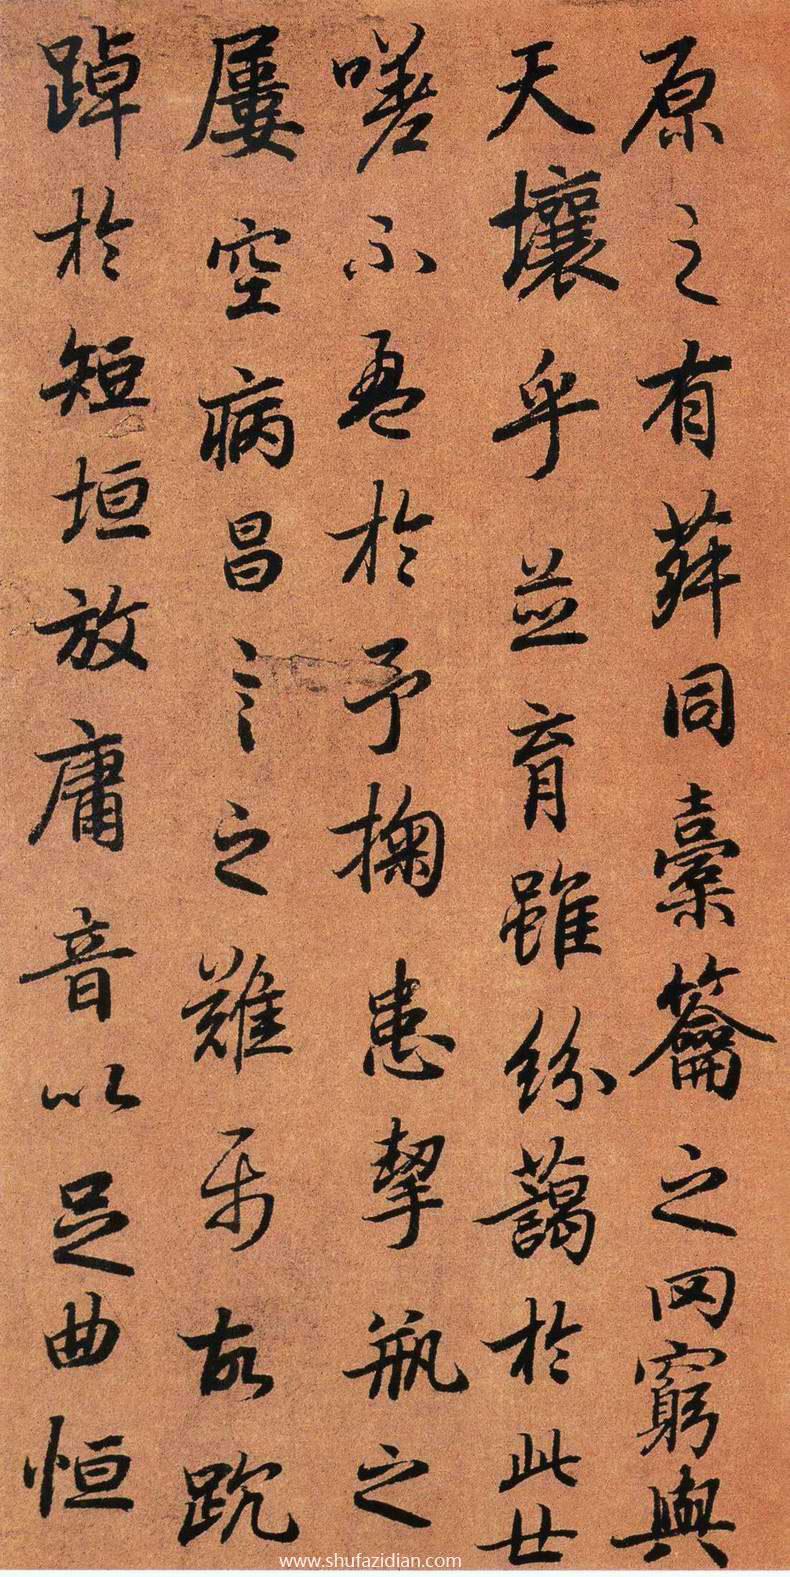 原之有菽同橐籥之罔窮與
天壤乎並育雖紛藹於此世
嗟不盈於予掬患挈瓶之
屢空病昌言之難屬故踸
踔於短垣放庸音以足曲恒
www.shufazidian.com